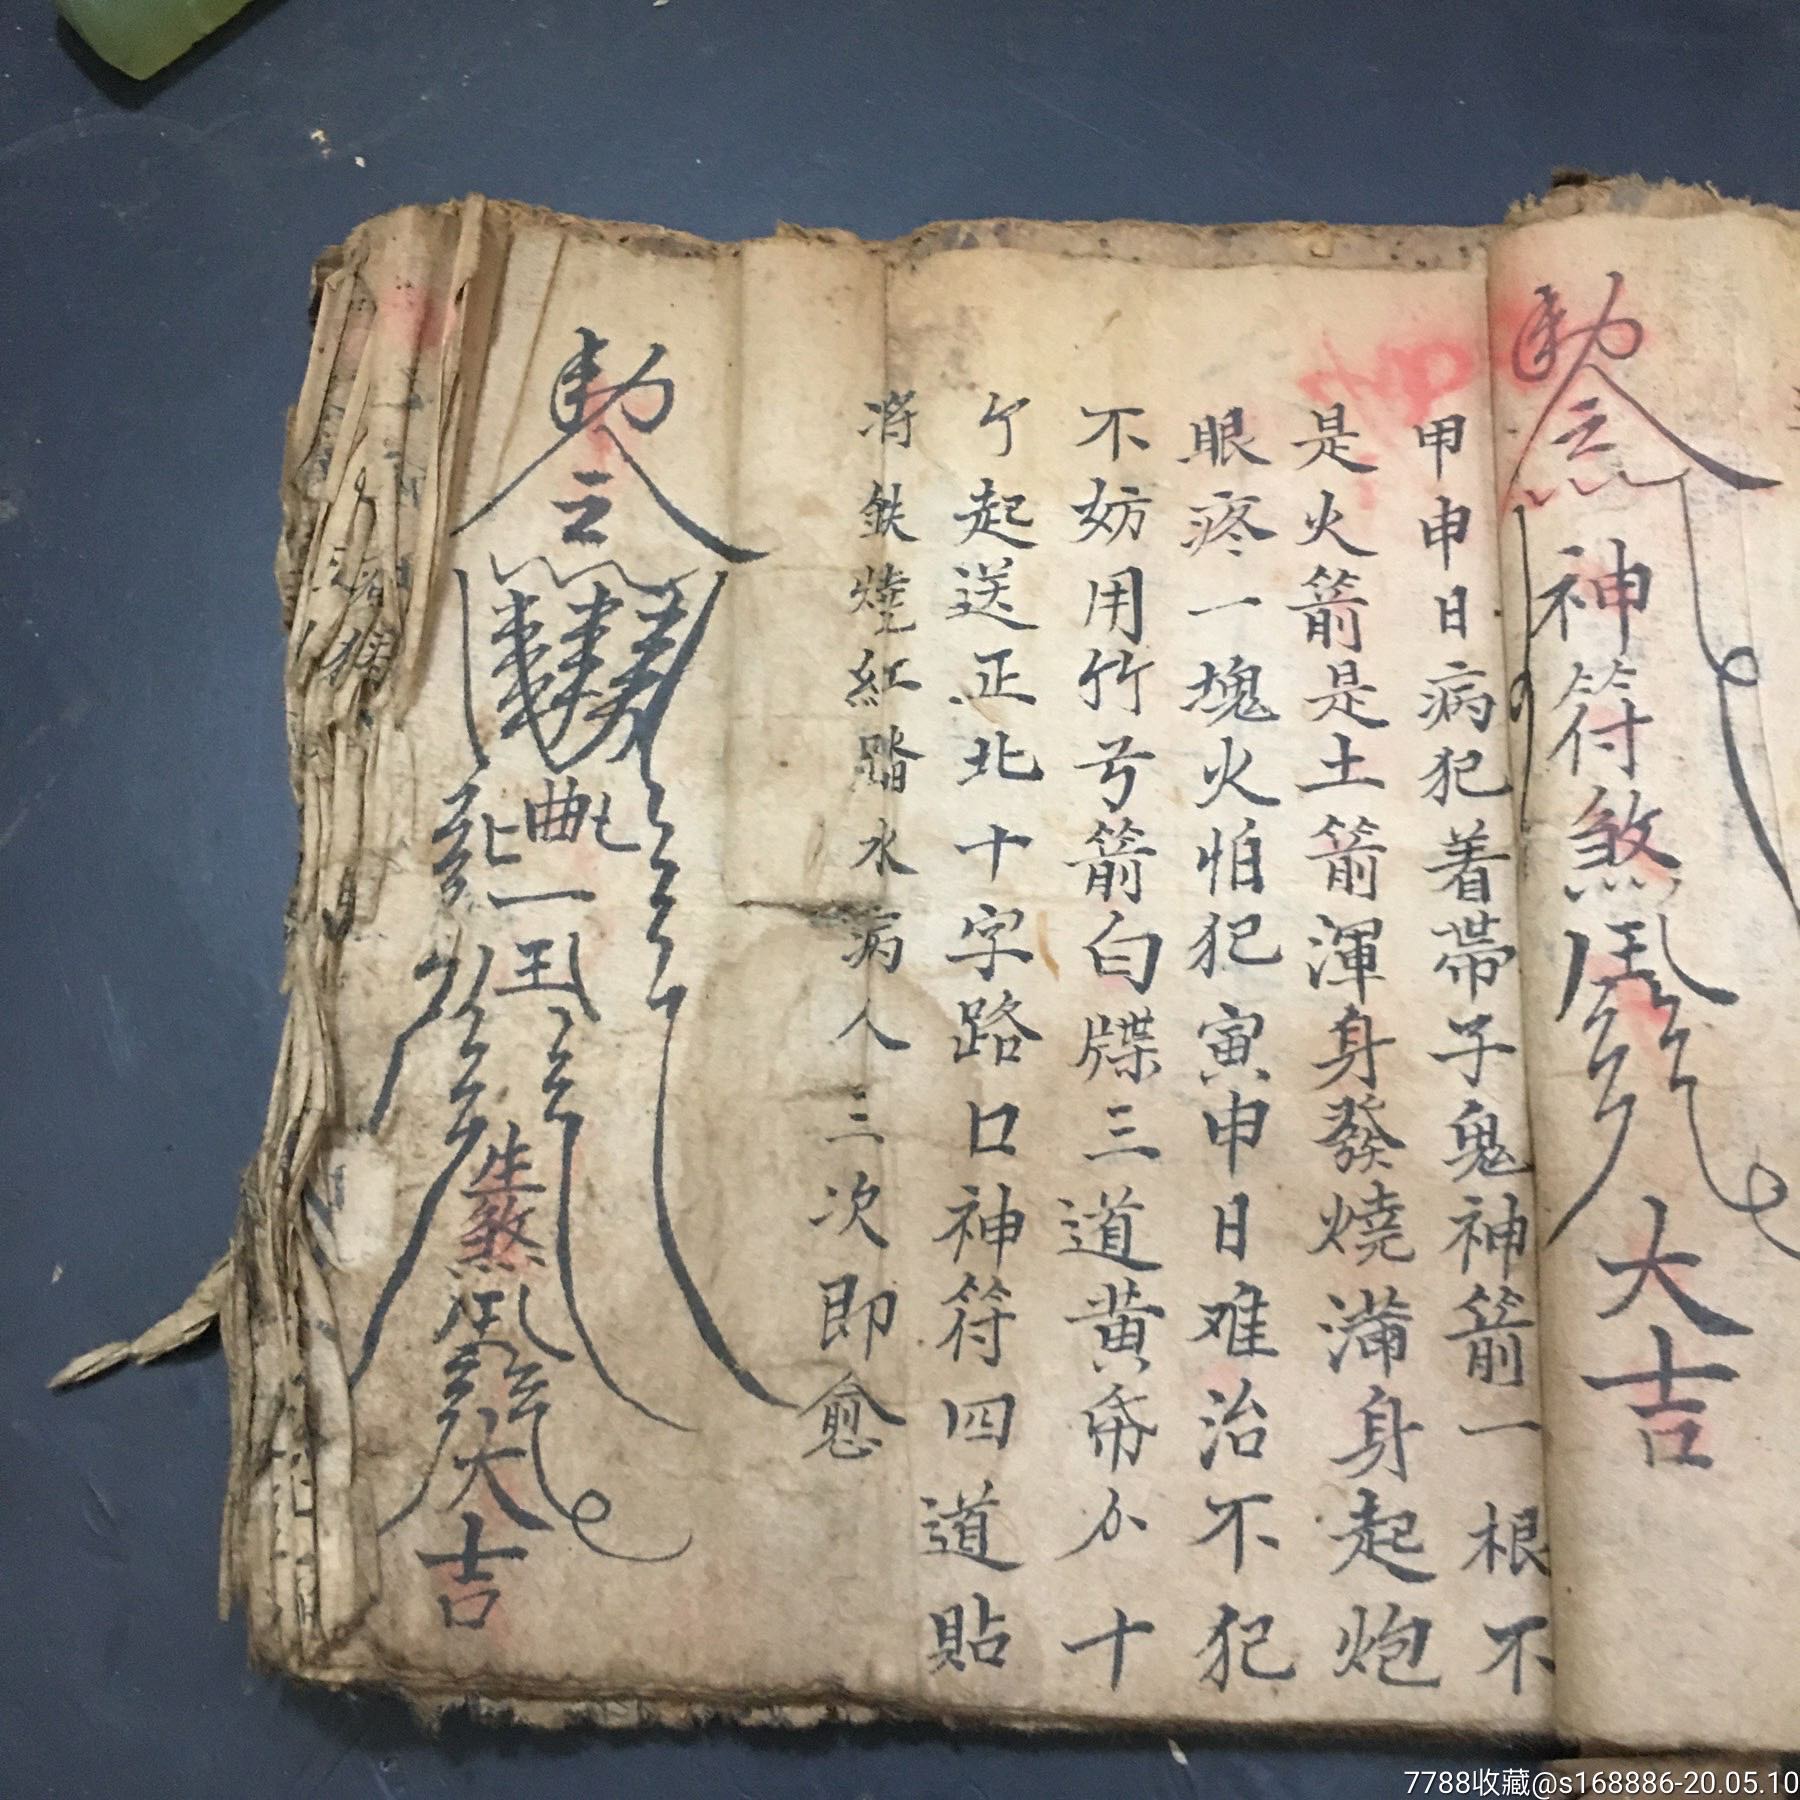 神符煞
大吉
甲申日病犯着帶子鬼神箭一根不
是火箭是土箭渾身發燒滿身起炮
眼疼一塊火怕犯寅申日难治不犯
不妨用竹弓箭白牒三道黄帋分十
个起送正北十字路口神符四道貼
将鉄燒紅踏水病人三次即愈
生煞
大吉
7788收藏@s168886-20.05.10